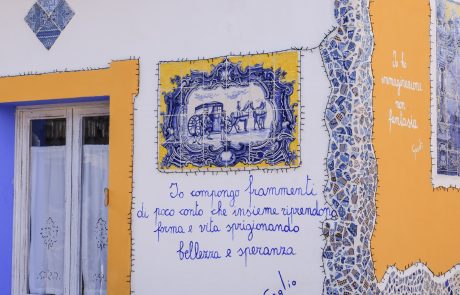 Io compongo frammenti
di poco conto che insieme riprendono
forma e vita sprigionando
bellezza e speranza
Giglio
Io ho
immaginazione
non
fantasia